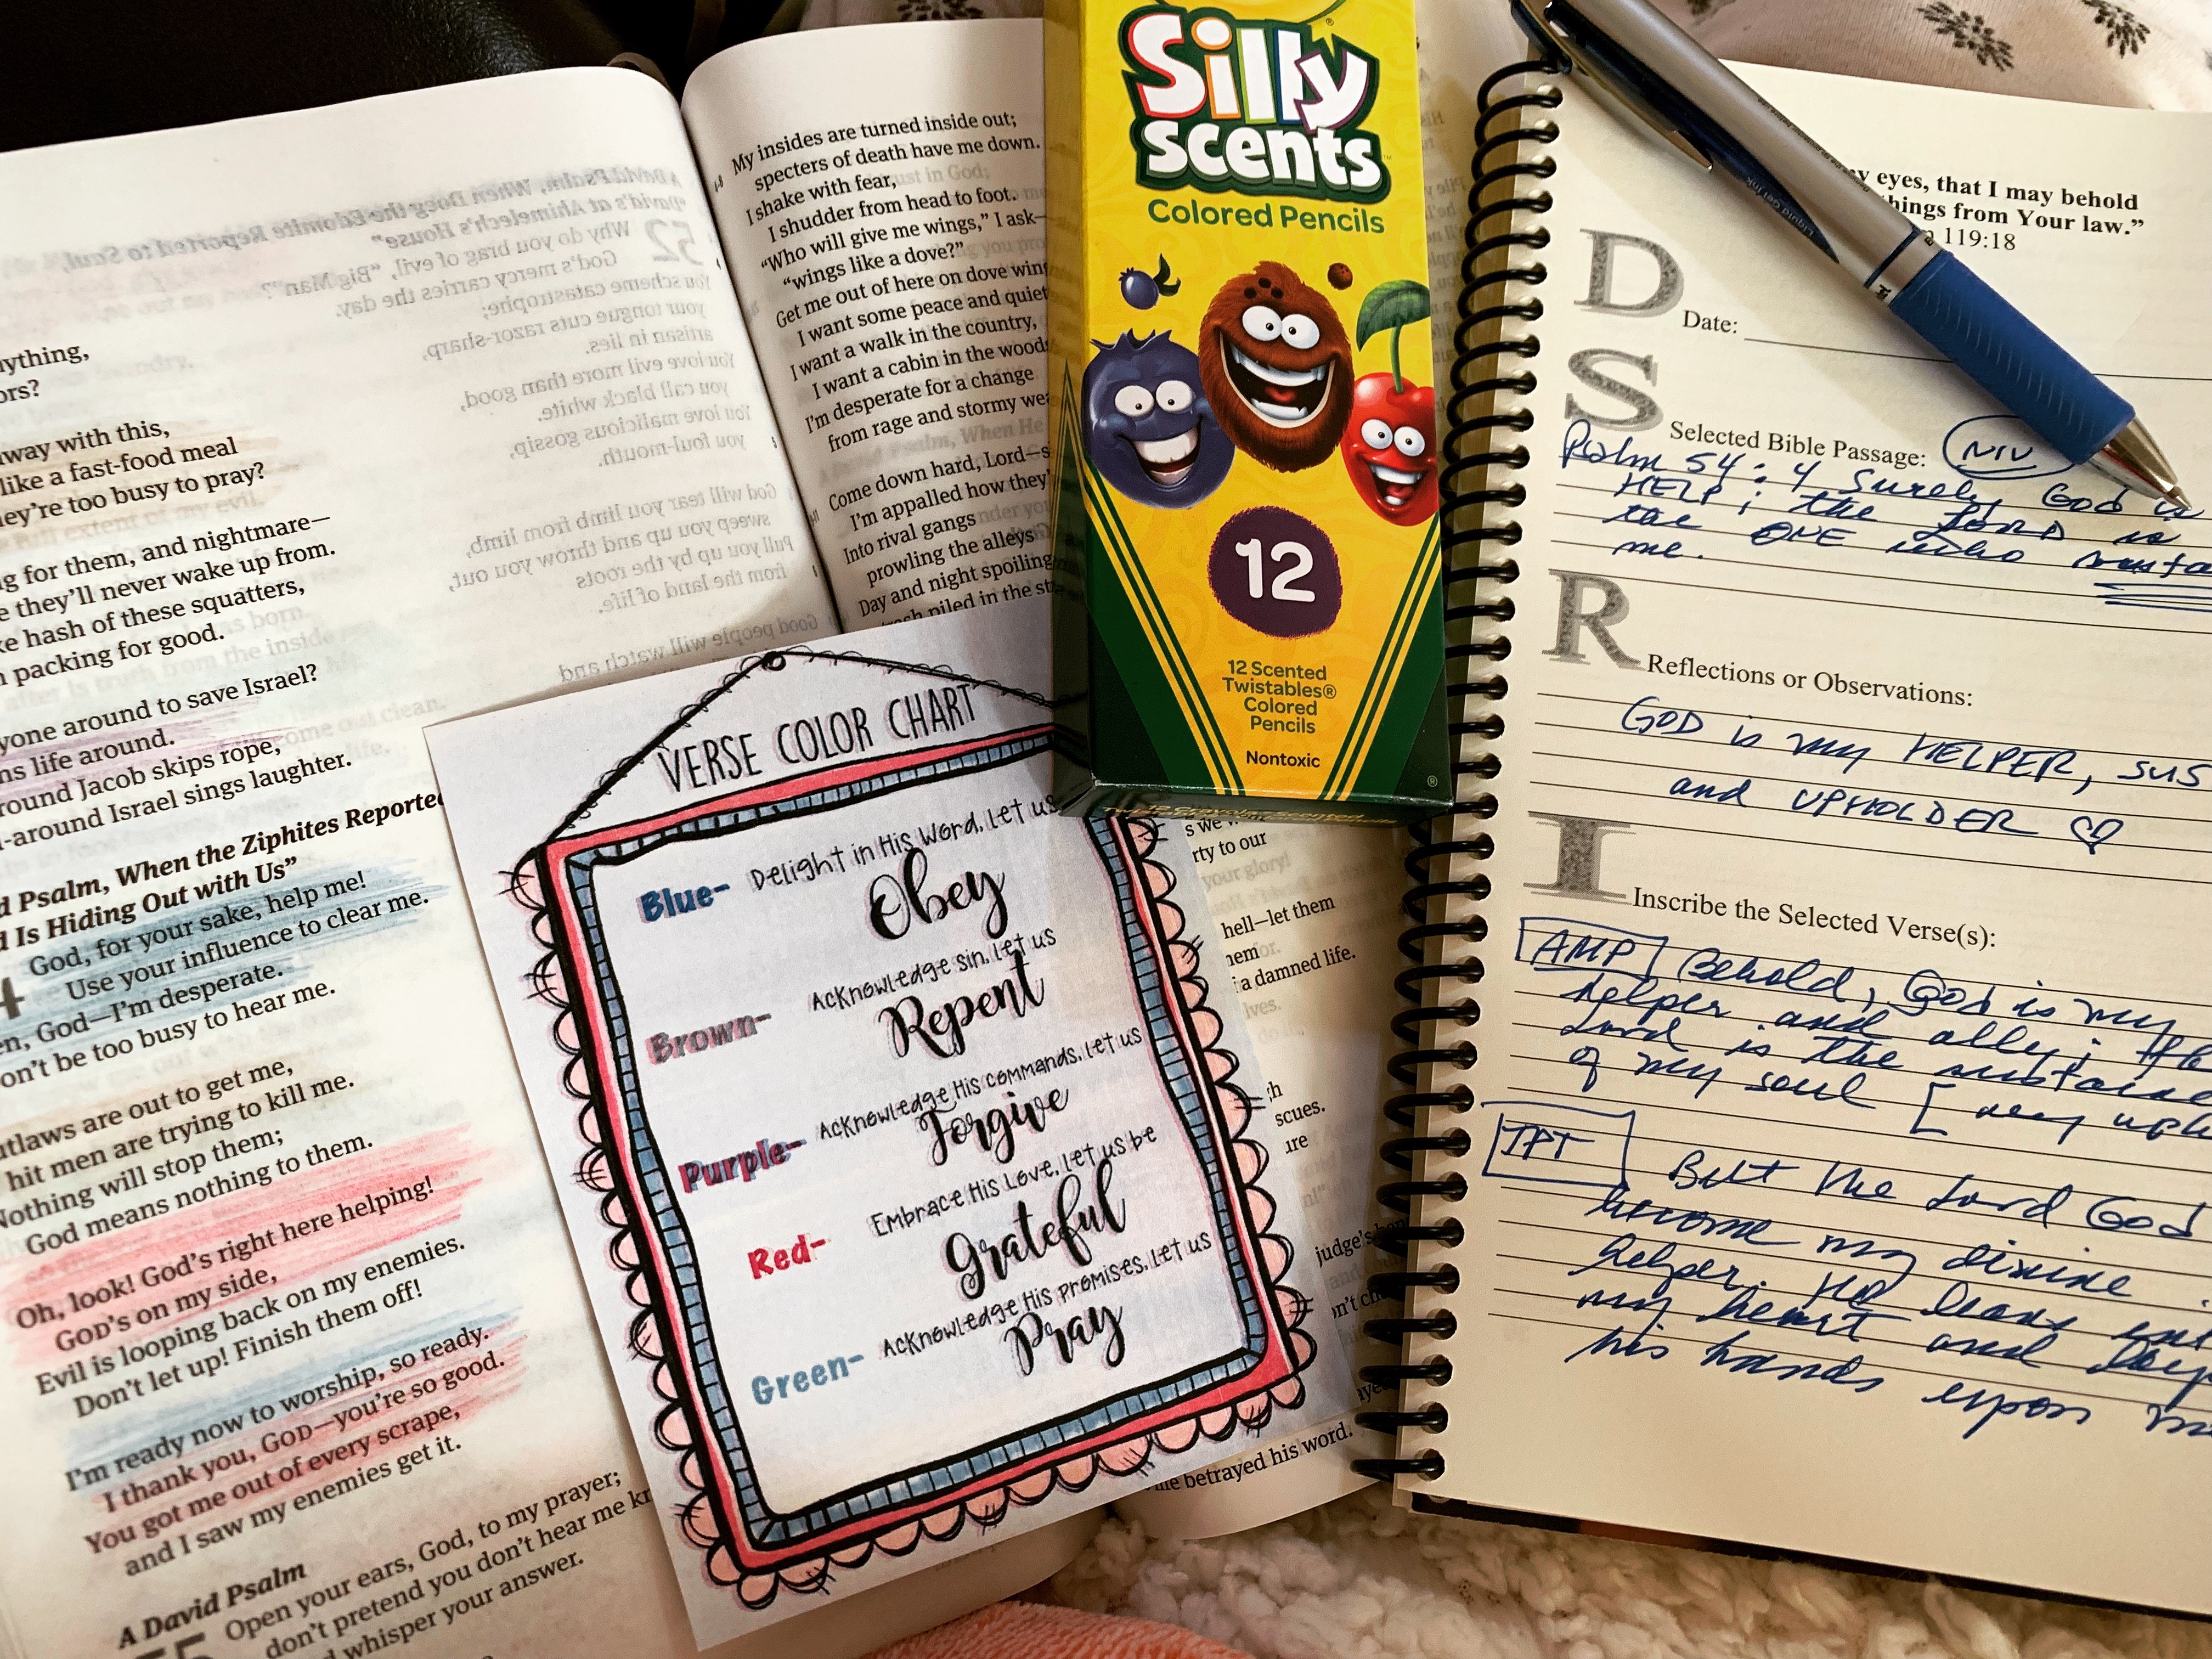 ything,
ors?
away with this,
like a fast-food meal
hey're too busy to pray?
g for them, and nightmare—
e they'll never wake up from.
ke hash of these squatters,
packing for good.
yone around to save Israel?
ns life around.
round Jacob skips rope,
-around Israel sings laughter.
d Psalm, When the Ziphites Reported
d Is Hiding Out with Us"
4 God, for your sake, help me!
Use your influence to clear me.
en, God—I'm desperate.
on't be too busy to hear me.
utlaws are out to get me,
hit men are trying to kill me.
Nothing will stop them;
God means nothing to them.
Oh, look! God's right here helping!
GOD's on my side,
Evil is looping back on my enemies.
Don't let up! Finish them off!
I'm ready now to worship, so ready.
I thank you, GOD—you're so good.
You got me out of every scrape,
and I saw my enemies get it.
A David Psalm
55 Open your ears, God, to my prayer;
don't pretend you don't hear me kn
d whisper your answer.
52
Why do you brag of evil, "Big Man"?
God's mercy carries the day.
You scheme catastrophe;
your tongue cuts razor-sharp,
artisan in lies.
You love evil more than good,
you call black white.
You love malicious gossip,
you foul-mouth.
God will tear you limb from limb,
sweep you up and throw you out,
Pull you up by the roots
from the land of life.
Good people will watch and
My insides are turned inside out;
specters of death have me down.
I shake with fear,
I shudder from head to foot.
"Who will give me wings," I ask—
"wings like a dove?"
Get me out of here on dove wing
I want some peace and quiet
I want a walk in the country,
I want a cabin in the woods
I'm desperate for a change
from rage and stormy wea
Come down hard, Lord—s
I'm appalled how they'
Into rival gangs
prowling the alleys
Day and night spoiling
trash piled in the st
rty to our
hell—let them
hem
a damned life.
scues.
judge's
betrayed his word.
VERSE COLOR CHART
Blue- Delight in His Word, let us
Obey
Brown- Acknowledge sin, let us
Repent
Purple- Acknowledge His commands, let us
Forgive
Red- Embrace His Love, let us be
Grateful
Green- Acknowledge His promises, let us
Pray
Silly
Scents
Colored Pencils
12
12 Scented
Twistables®
Colored
Pencils
Nontoxic
y eyes, that I may behold
things from Your law."
119:18
D Date:
S Selected Bible Passage: NIV
Psalm 54:4 Surely God is
HELP; the LORD is
the ONE who susta
me.
R Reflections or Observations:
GOD is my HELPER, SUS
and UPHOLDER
I Inscribe the Selected Verse(s):
AMP Behold, God is my
helper and ally; the
Lord is the sustaine
of my soul [my uph
TPT But the Lord God
become my divine
helper. He leans int
my heart and lays
his hands upon m